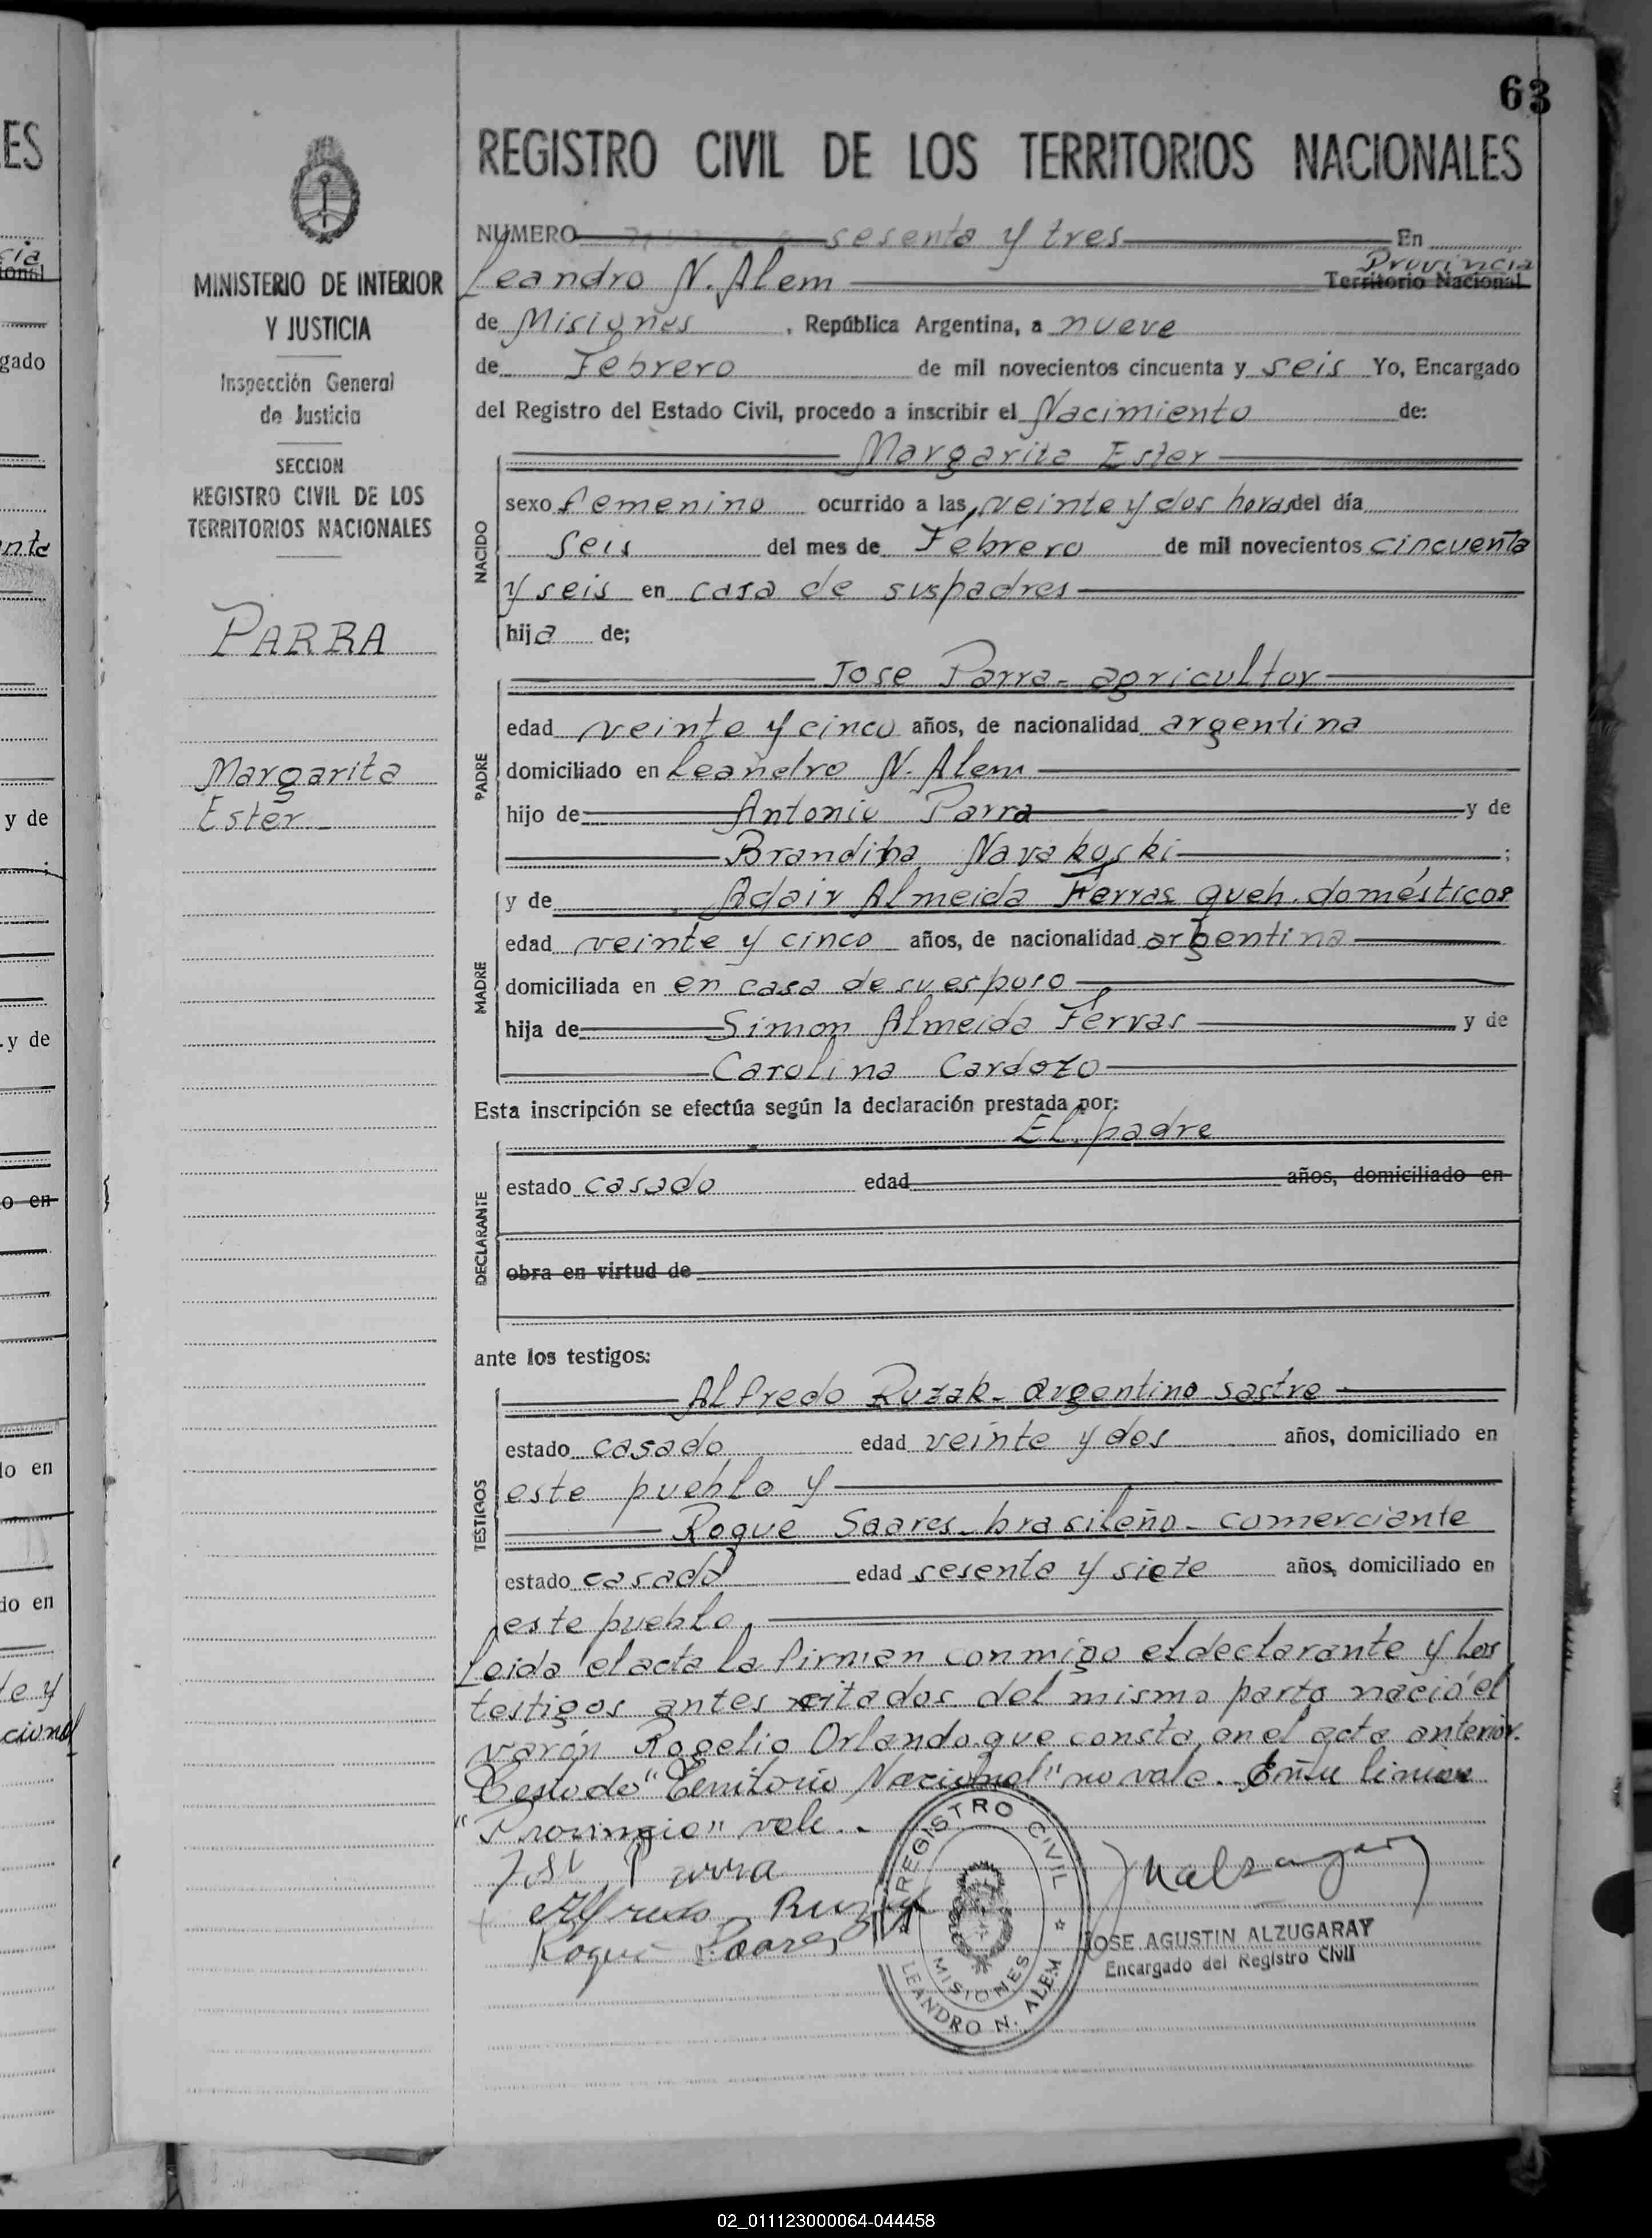 63
REGISTRO CIVIL DE LOS TERRITORIOS NACIONALES
MINISTERIO DE INTERIOR
Y JUSTICIA
Inspección General
de Justicia
SECCION
REGISTRO CIVIL DE LOS
TERRITORIOS NACIONALES
PARRA
Margarita
Ester
NUMERO sesenta y tres En
Provincia
Leandro N. Alem Territorio Nacional
de Misiones, República Argentina, a nueve
de Febrero de mil novecientos cincuenta y seis Yo, Encargado
del Registro del Estado Civil, procedo a inscribir el Nacimiento de:
Margarita Ester
NACIDO
sexo femenino ocurrido a las veinte y dos horas del día
seis del mes de Febrero de mil novecientos cincuenta
y seis en casa de sus padres
hija de;
Jose Parra - agricultor
PADRE
edad veinte y cinco años, de nacionalidad argentina
domiciliado en Leandro N. Alem
hijo de Antonio Parra y de
Brandina Navakoski;
y de Adair Almeida Ferras queh. domésticos
MADRE
edad veinte y cinco años, de nacionalidad argentina
domiciliada en en casa de su esposo
hija de Simon Almeida Ferras y de
Carolina Cardozo
Esta inscripción se efectúa según la declaración prestada por:
El padre
DECLARANTE
estado casado edad años, domiciliado en
obra en virtud de
ante los testigos:
Alfredo Ruzak - argentino sastre
TESTIGOS
estado casado edad veinte y dos años, domiciliado en
este pueblo y
Roque Soares - brasileño - comerciante
estado casado edad sesenta y siete años, domiciliado en
este pueblo
Leida el acta la firman conmigo el declarante y los
testigos antes citados del mismo parto nació el
varón Rogelio Orlando que consta en el acta anterior.
Testado "Territorio Nacional" no vale. Entre lineas
"Provincia" vale. -
José Parra
Alfredo Ruzak
Roque Soares
REGISTRO CIVIL
MISIONES
LEANDRO N. ALEM
JOSE AGUSTIN ALZUGARAY
Encargado del Registro Civil
02_011123000064-044458